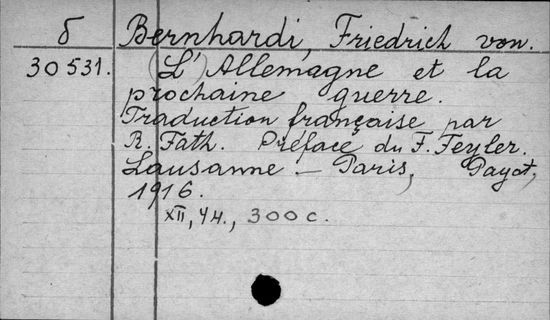 б Bernhardi, Friedrich von.
30531. (L')Allemagne et la
prochaine guerre.
Traduction française par
R. Fath. Préface du F. Feyler.
Lausanne – Paris, Payot,
1916.
XII, 4н., 300 с.